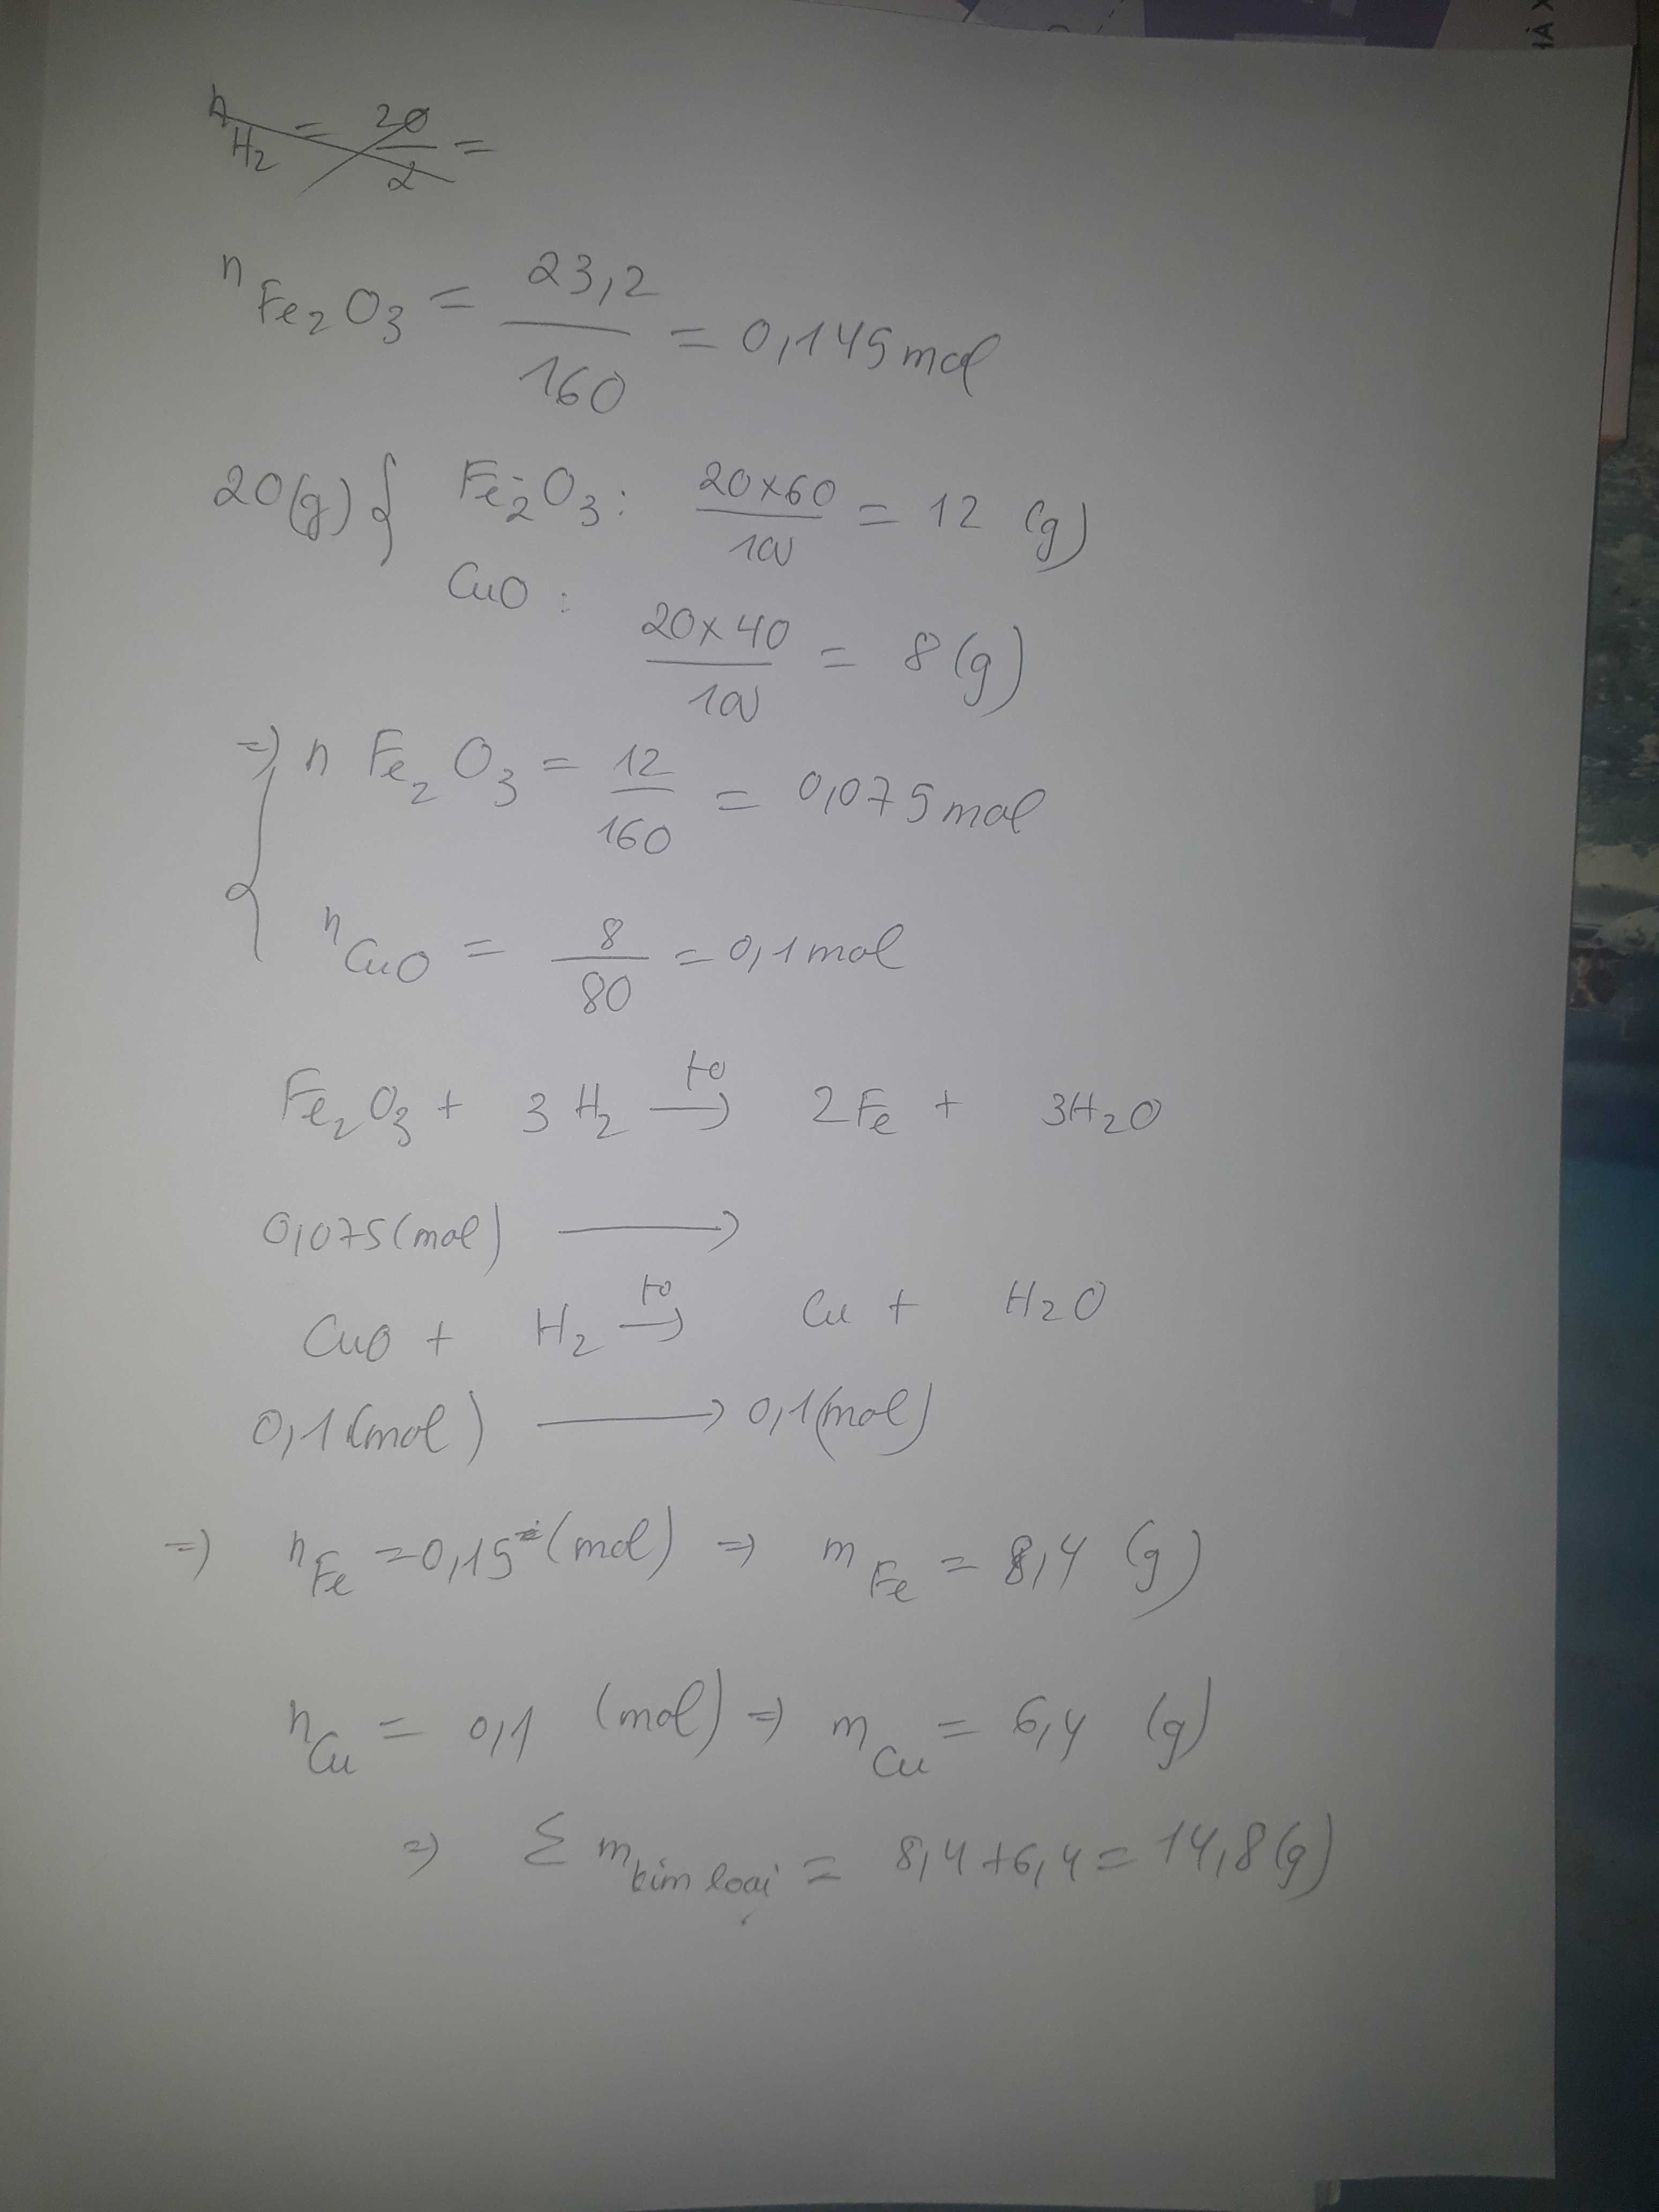 n H2 = 20/2 =
n Fe2O3 = 23,2/160 = 0,145 mol
20(g) { Fe2O3 : 20x60/100 = 12 (g)
CuO : 20x40/100 = 8 (g)
=> n Fe2O3 = 12/160 = 0,075 mol
{ n CuO = 8/80 = 0,1 mol
Fe2O3 + 3H2 →(to) 2Fe + 3H2O
0,075(mol) →
CuO + H2 →(to) Cu + H2O
0,1(mol) → 0,1(mol)
=> nFe = 0,15 (mol) => mFe = 8,4 (g)
nCu = 0,1 (mol) => mCu = 6,4 (g)
=> Σ m kim loại = 8,4+6,4 = 14,8(g)